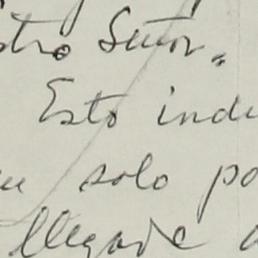 stro Señor.
Esto indu
solo po
llegar a